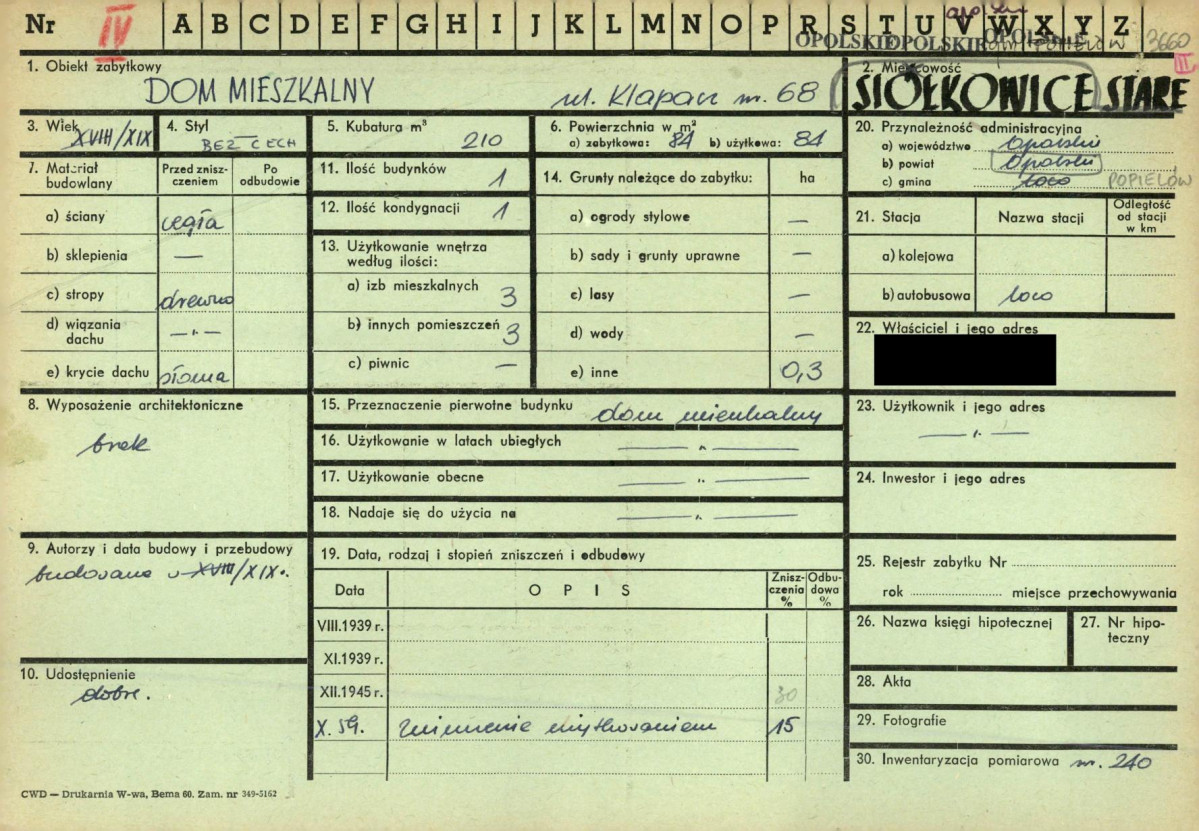 Nr IV A B C D E F G H I J K L M N O P R S T U V W X Y Z
OPOLSKIE OPOLSKIE OPOLSKIE 3660
III
1. Obiekt zabytkowy
DOM MIESZKALNY ul. Klapacz nr. 68
2. Miejscowość
SIOŁKOWICE STARE
3. Wiek XVIII/XIX
4. Styl BEZ CECH
5. Kubatura m³ 210
6. Powierzchnia w m²
a) zabytkowa: 84 b) użytkowa: 84
20. Przynależność administracyjna
a) województwo Opolskie
b) powiat Opolski
c) gmina loco POPIELÓW
7. Materiał budowlany
Przed zniszczeniem
Po odbudowie
a) ściany cegła
b) sklepienia —
c) stropy drewno
d) wiązania dachu —"—
e) krycie dachu słoma
11. Ilość budynków 1
12. Ilość kondygnacji 1
13. Użytkowanie wnętrza
według ilości:
a) izb mieszkalnych 3
b) innych pomieszczeń 3
c) piwnic —
14. Grunty należące do zabytku: ha
a) ogrody stylowe —
b) sady i grunty uprawne —
c) lasy —
d) wody —
e) inne 0,3
21. Stacja
Nazwa stacji
Odległość od stacji w km
a) kolejowa
b) autobusowa loco
22. Właściciel i jego adres
8. Wyposażenie architektoniczne
brak
15. Przeznaczenie pierwotne budynku dom mieszkalny
16. Użytkowanie w latach ubiegłych —"—
17. Użytkowanie obecne —"—
18. Nadaje się do użycia na —"—
23. Użytkownik i jego adres
—"—
24. Inwestor i jego adres
9. Autorzy i data budowy i przebudowy
budowane w XVIII/XIX.
19. Data, rodzaj i stopień zniszczeń i odbudowy
Data OPIS Zniszczenia % Odbudowa %
VIII.1939 r.
XI.1939 r.
XII.1945 r. 30
X.59. zniszczenie użytkowaniem 15
25. Rejestr zabytku Nr
rok miejsce przechowywania
26. Nazwa księgi hipotecznej
27. Nr hipoteczny
10. Udostępnienie
dobre.
28. Akta
29. Fotografie
30. Inwentaryzacja pomiarowa nr. 240
CWD — Drukarnia W-wa, Bema 60. Zam. nr 349-5162